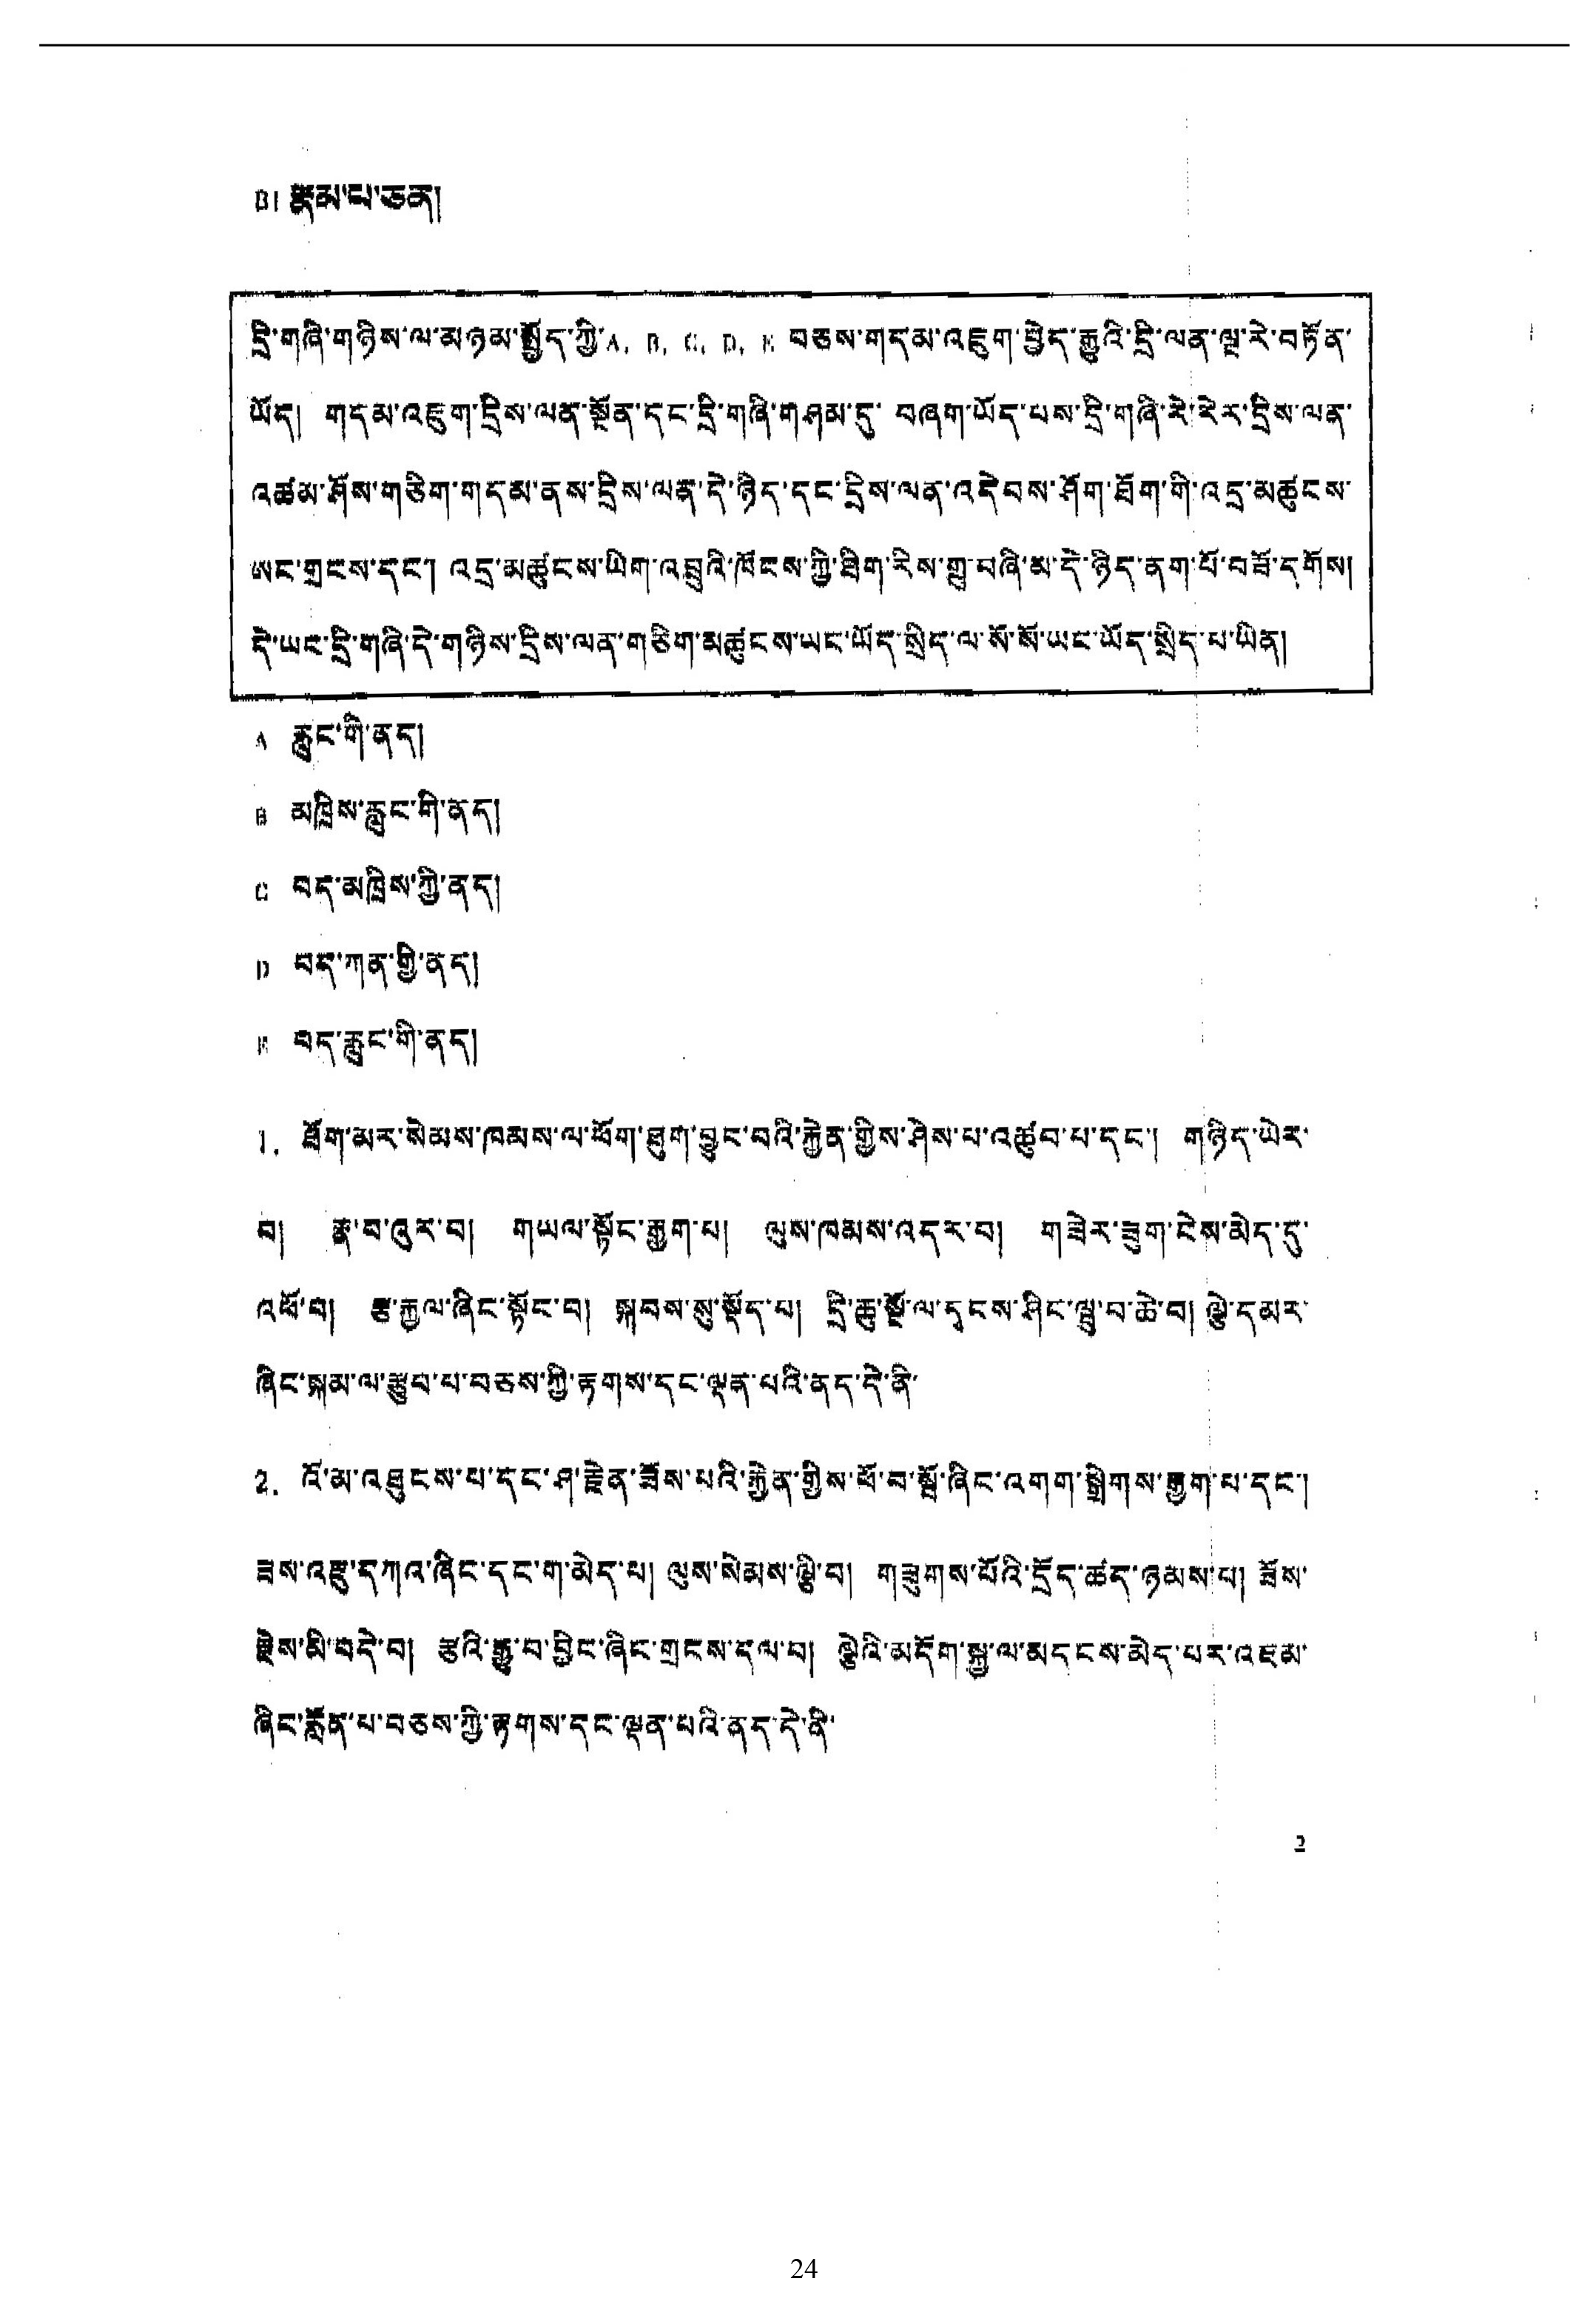 B། རྣམ་པ་ཅན།
དྲི་གཞི་གཉིས་ལ་མཉམ་སྤྱོད་ཀྱི་A, B, C, D, E བཅས་གདམ་འཇུག་བྱེད་རྒྱུའི་དྲི་ལན་ལྔ་རེ་བཏོན་
ཡོད། གདམ་འཇུག་དྲིས་ལན་སྔོན་དང་དྲི་གཞི་གཤམ་དུ་ བཞག་ཡོད་པས་དྲི་གཞི་རེ་རེར་དྲིས་ལན་
འཚམ་ཤོས་གཅིག་གདམ་ནས་དྲིས་ལན་དེ་ཉིད་དང་དྲིས་ལན་འདེབས་ཤོག་ཐོག་གི་འདྲ་མཚུངས་
ཨང་གྲངས་དང་། འདྲ་མཚུངས་ཡིག་འབྲུའི་ཁོངས་ཀྱི་ཐིག་རིས་གྲུ་བཞི་མ་དེ་ཉིད་ནག་པོ་བཟོ་དགོས།
དེ་ཡང་དྲི་གཞི་དེ་གཉིས་དྲིས་ལན་གཅིག་མཚུངས་ཡང་ཡོད་སྲིད་ལ་སོ་སོ་ཡང་ཡོད་སྲིད་པ་ཡིན།
A རླུང་གི་ནད།
B མཁྲིས་རླུང་གི་ནད།
C བད་མཁྲིས་ཀྱི་ནད།
D བད་ཀན་གྱི་ནད།
E བད་རླུང་གི་ནད།
1. ཐོག་མར་སེམས་ཁམས་ལ་ཕོག་ཐུག་བྱུང་བའི་རྐྱེན་གྱིས་ཤེས་པ་འཚུབ་པ་དང་། གཉིད་ཡེར་
བ། རྣ་བ་འུར་བ། གཡལ་སྟོང་རྒྱག་པ། ལུས་ཁམས་འདར་བ། གཟེར་ཟུག་ངེས་མེད་དུ་
འཕོ་བ། རྩ་རྐྱལ་ཞིང་སྟོང་བ། སྐབས་སུ་སྡོད་པ། དྲི་ཆུ་སྔོ་ལ་དྭངས་ཤིང་ལྦུ་བ་ཆེ་བ། ལྕེ་དམར་
ཞིང་སྐམ་ལ་རྩུབ་པ་བཅས་ཀྱི་རྟགས་དང་ལྡན་པའི་ནད་དེ་ནི་
2. འོ་མ་འཐུངས་པ་དང་ཤ་རྗེན་ཟོས་པའི་རྐྱེན་གྱིས་ཕོ་བ་སྦོ་ཞིང་འགག་སྒྲིགས་རྒྱག་པ་དང་།
ཟས་འཇུ་དཀའ་ཞིང་དང་ག་མེད་པ། ལུས་སེམས་ལྕི་བ། གཟུགས་པོའི་དྲོད་ཚད་ཉམས་པ། ཟོས་
རྗེས་མི་བདེ་བ། རྩའི་རྒྱུ་བ་བྱིང་ཞིང་གྲངས་དལ་བ། ལྕེའི་མདོག་སྐྱ་ལ་མདངས་མེད་པར་འཇམ་
ཞིང་རློན་པ་བཅས་ཀྱི་རྟགས་དང་ལྡན་པའི་ནད་དེ་ནི་
2
24